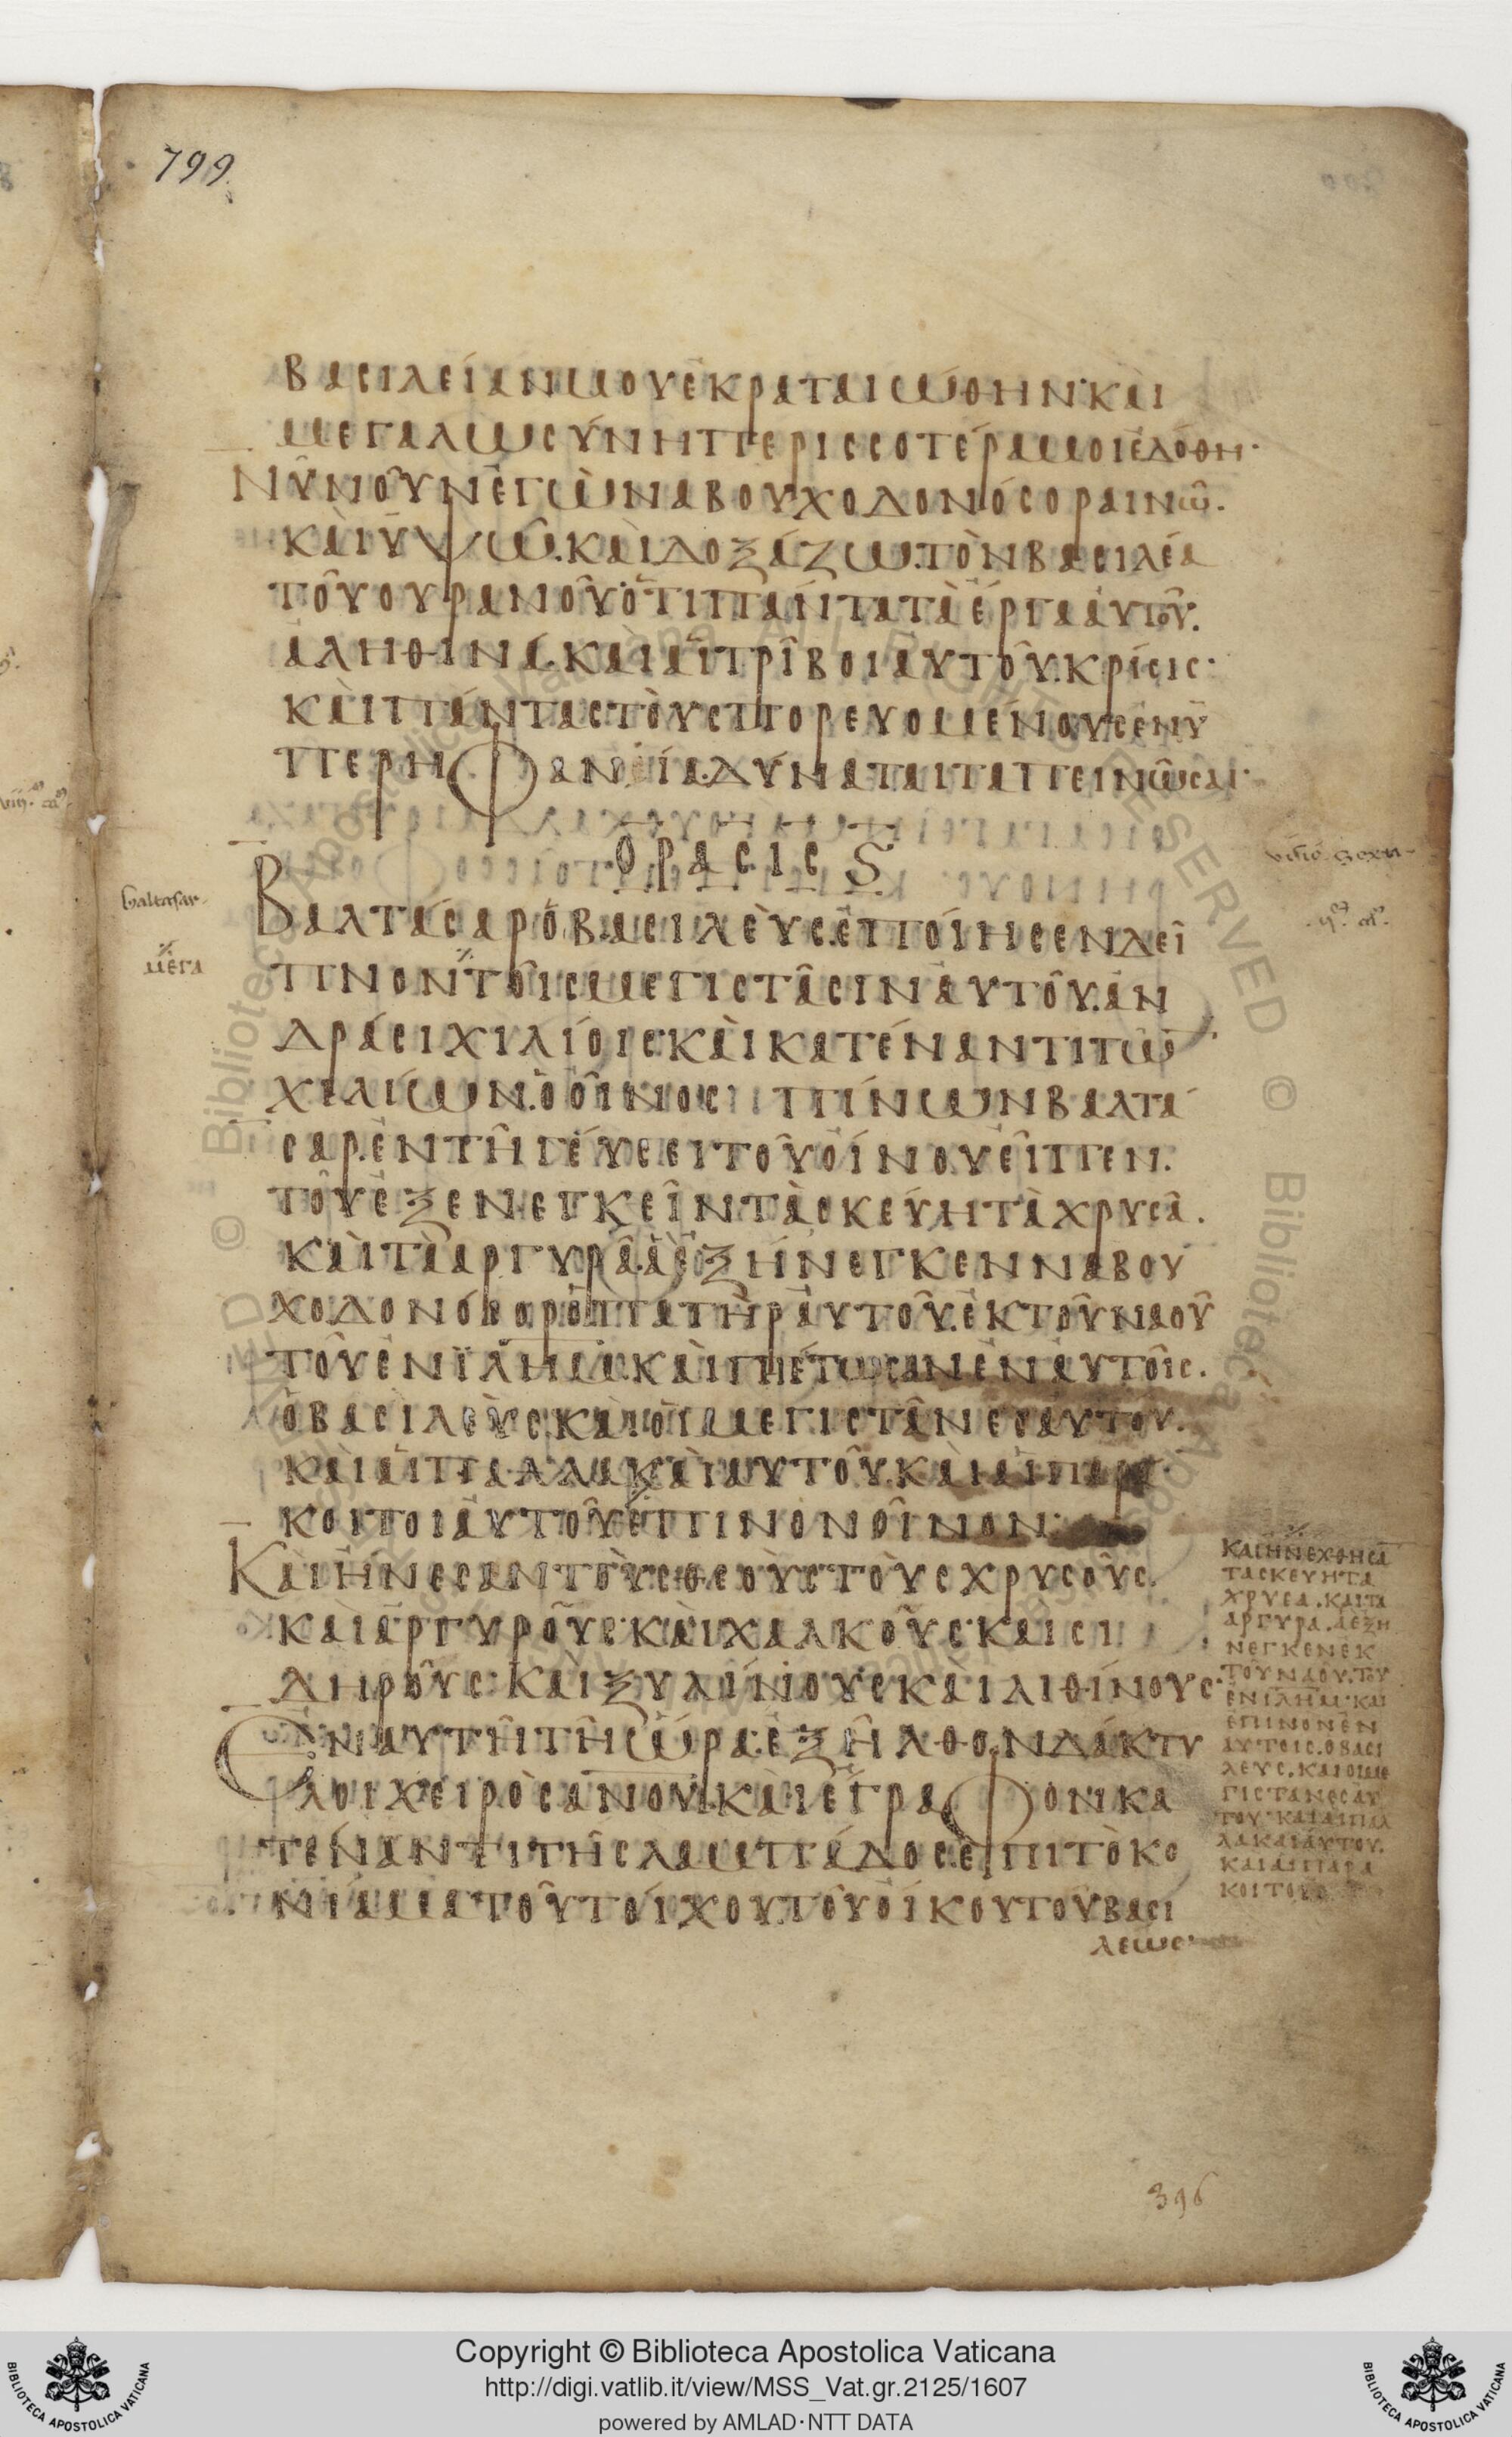 799
βασιλείαν μου ἐκραταιώθην· καὶ
μεγαλωσύνη περισσοτέρα μοι ἐδόθη·
Νῦν οὖν ἐγὼ ναβουχοδονόσορ αἰνῶ.
καὶ ὑψῶ. καὶ δοξάζω. τὸν βασιλέα
τοῦ οὐρανοῦ· ὅτι πάντα τὰ ἔργα αὐτοῦ.
ἀληθινά. καὶ αἱ τρίβοι αὐτοῦ. κρίσις·
καὶ πάντας τοὺς πορευομένους ἐν ὑ
περηφανία. δύναται ταπεινῶσαι·
ὅρασις ς
Βαλτάσαρ ὁ βασιλεὺς. ἐποίησεν δεῖ
πνον τοῖς μεγιστᾶσιν αὐτοῦ. ἀν
δράσι χιλίοις· καὶ κατέναντι τῶ̅
χιλίων. ὁ οἶνος· πίνων βαλτα
σαρ. ἐν τῆι γεύσει τοῦ οἴνου. εἶπεν.
τοῦ ἐξενεγκεῖν τὰ σκεύη τὰ χρυσᾶ.
καὶ τὰ ἀργυρᾶ. ἃ ἐξήνεγκεν ναβου
χοδονόσορ ὁ πατὴρ αὐτοῦ. ἐκ τοῦ ναοῦ
τοῦ ἐν ϊλημ. καὶ πιέτωσαν ἐν αὐτοῖς.
ὁ βασιλεὺς. καὶ οἱ μεγιστᾶνες αὐτοῦ.
καὶ αἱ παλλακαὶ αὐτοῦ. καὶ αἱ παρά
κοιτοι αὐτοῦ ἔπινον οἶνον·
Καὶ ἤνεσαν τοὺς θεοὺς τοὺς χρυσοῦς.
καὶ ἀργυροῦς· καὶ χαλκοῦς· καὶ σι
δηροῦς· καὶ ξυλίνους· καὶ λιθίνους·
Ἐν αὐτῆι τῆ ὥρα. ἐξῆλθον δάκτυ
λοι χειρὸς ανου. καὶ ἔγραφον κα
τέναντι τῆς λαμπάδος. ἐπὶ τὸ κο
νίαμα τοῦ τοίχου τοῦ οἴκου τοῦ βασι
λέως·
baltasar
μεγα
και ηνεχθησα̅
τα σκευη τα
χρυσα. και τα
αργυρα. α εξη
νεγκεν εκ
του ναου. του
εν ιλημ· και
επινον εν
αυτοις. ο βασι
λευς. και οι με
γιστανες αυ
του· και αι παλ
λακαι αυτου.
και αι παρα
κοιτοι
396
Copyright © Biblioteca Apostolica Vaticana
http://digi.vatlib.it/view/MSS_Vat.gr.2125/1607
powered by AMLAD·NTT DATA
BIBLIOTECA APOSTOLICA VATICANA
BIBLIOTECA APOSTOLICA VATICANA